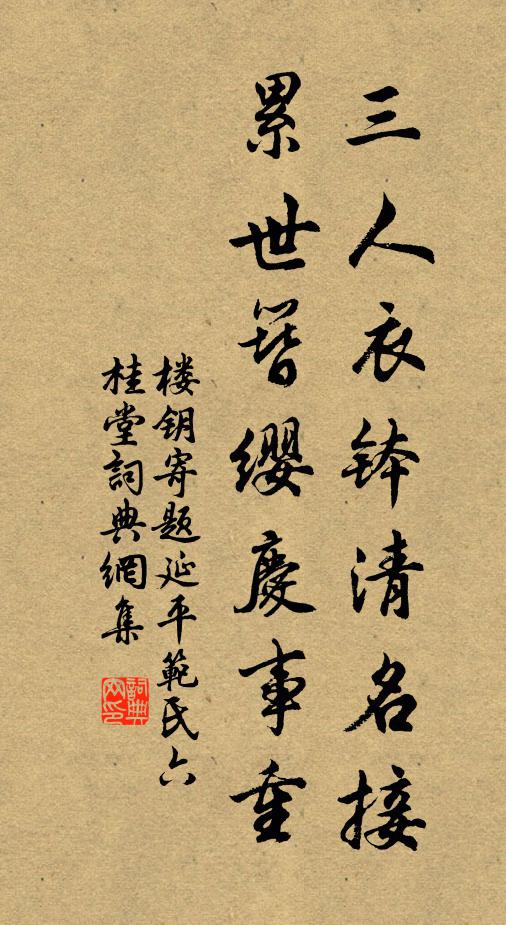 三人衣钵清名接
累世簪缨慶事重
楼钥寄题延平範氏六
桂堂詞典網集
詞典网印